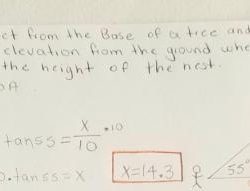 from the Base of a tree and
elevation from the ground whe
the height of the nest.
tan55 = X/10 •10
.tan55=X
X=14.3
55